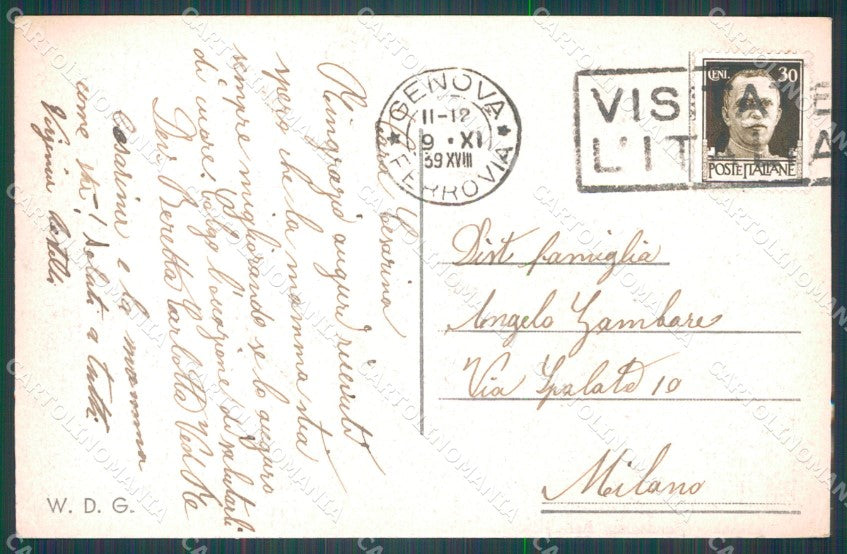 GENOVA
11-12
9 · XI
39 XVIII
FERROVIA
VISITATE
L'ITALIA
CENT. 30
POSTE ITALIANE
Cara Cesarina
Ringrazio auguri ricevuti
spero che la mamma stia
sempre migliorando se lo auguro
di cuore. Colgo l'occasione di salutarli
Dev. Beretta Carlotta Ved
Cesarina e la mamma
come sta! Saluti a tutti
Virginia
Dist famiglia
Angelo Zambare
Via Spalato 10
Milano
W. D. G.
CARTOLINOMANIA